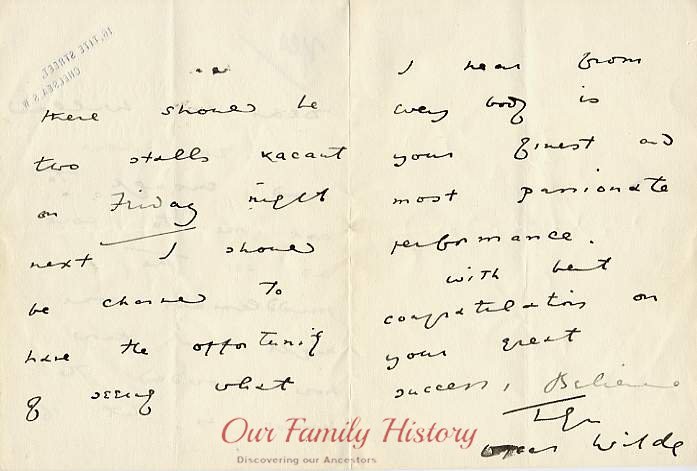 16, TITE STREET,
CHELSEA S.W.
there should be
two stalls vacant
on Friday night
next I should
be charmed to
have the opportunity
of seeing what
I hear from
every body is
your finest and
most passionate
performance.
with best
congratulations on
your great
success, Believe
Oscar Wilde
Our Family History
Discovering our Ancestors